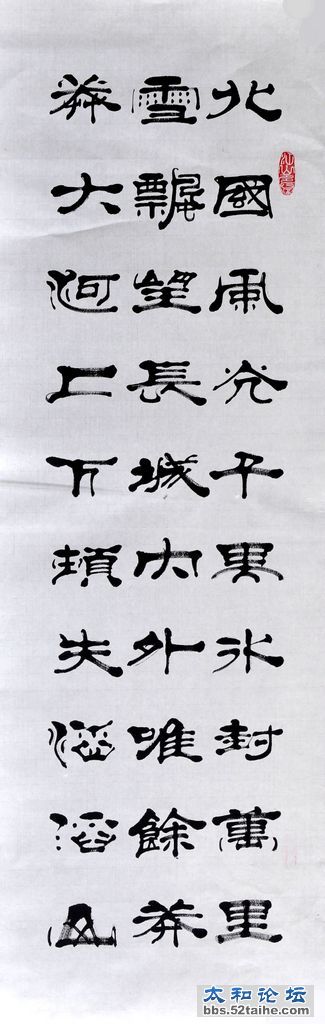 北國風光千里冰封萬里
雪飄望長城內外唯餘莽
莽大河上下頓失滔滔山
太和论坛
bbs.52taihe.com